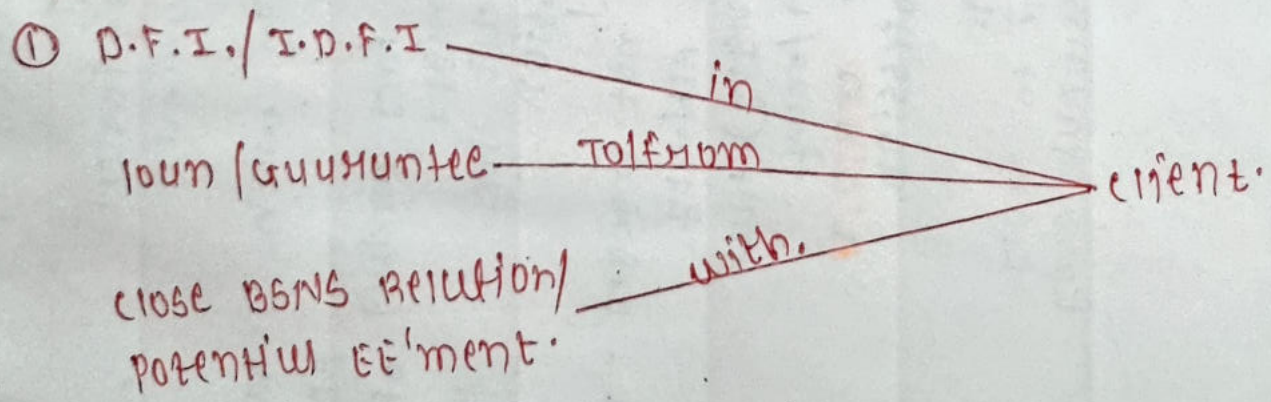 ① D.F.I./I.D.F.I
in
loan/Guarantee
To/from
client.
close BSNS Relation/
with.
potential EE'ment.